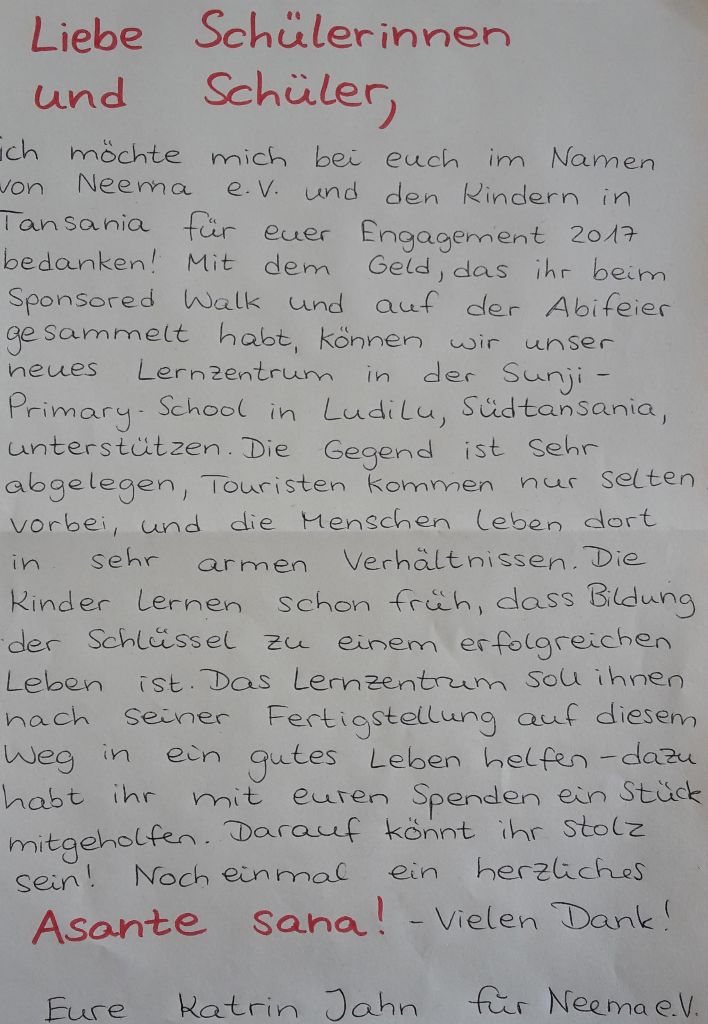 Liebe Schülerinnen
und Schüler,
ich möchte mich bei euch im Namen
von Neema e.V. und den Kindern in
Tansania für euer Engagement 2017
bedanken! Mit dem Geld, das ihr beim
Sponsored Walk und auf der Abifeier
gesammelt habt, können wir unser
neues Lernzentrum in der Sunji-
Primary-School in Ludilu, Südtansania,
unterstützen. Die Gegend ist sehr
abgelegen, Touristen kommen nur selten
vorbei, und die Menschen leben dort
in sehr armen Verhältnissen. Die
Kinder lernen schon früh, dass Bildung
der Schlüssel zu einem erfolgreichen
Leben ist. Das Lernzentrum soll ihnen
nach seiner Fertigstellung auf diesem
Weg in ein gutes Leben helfen - dazu
habt ihr mit euren Spenden ein Stück
mitgeholfen. Darauf könnt ihr stolz
sein! Noch einmal ein herzliches
Asante sana! - Vielen Dank!
Eure Katrin Jahn für Neema e.V.